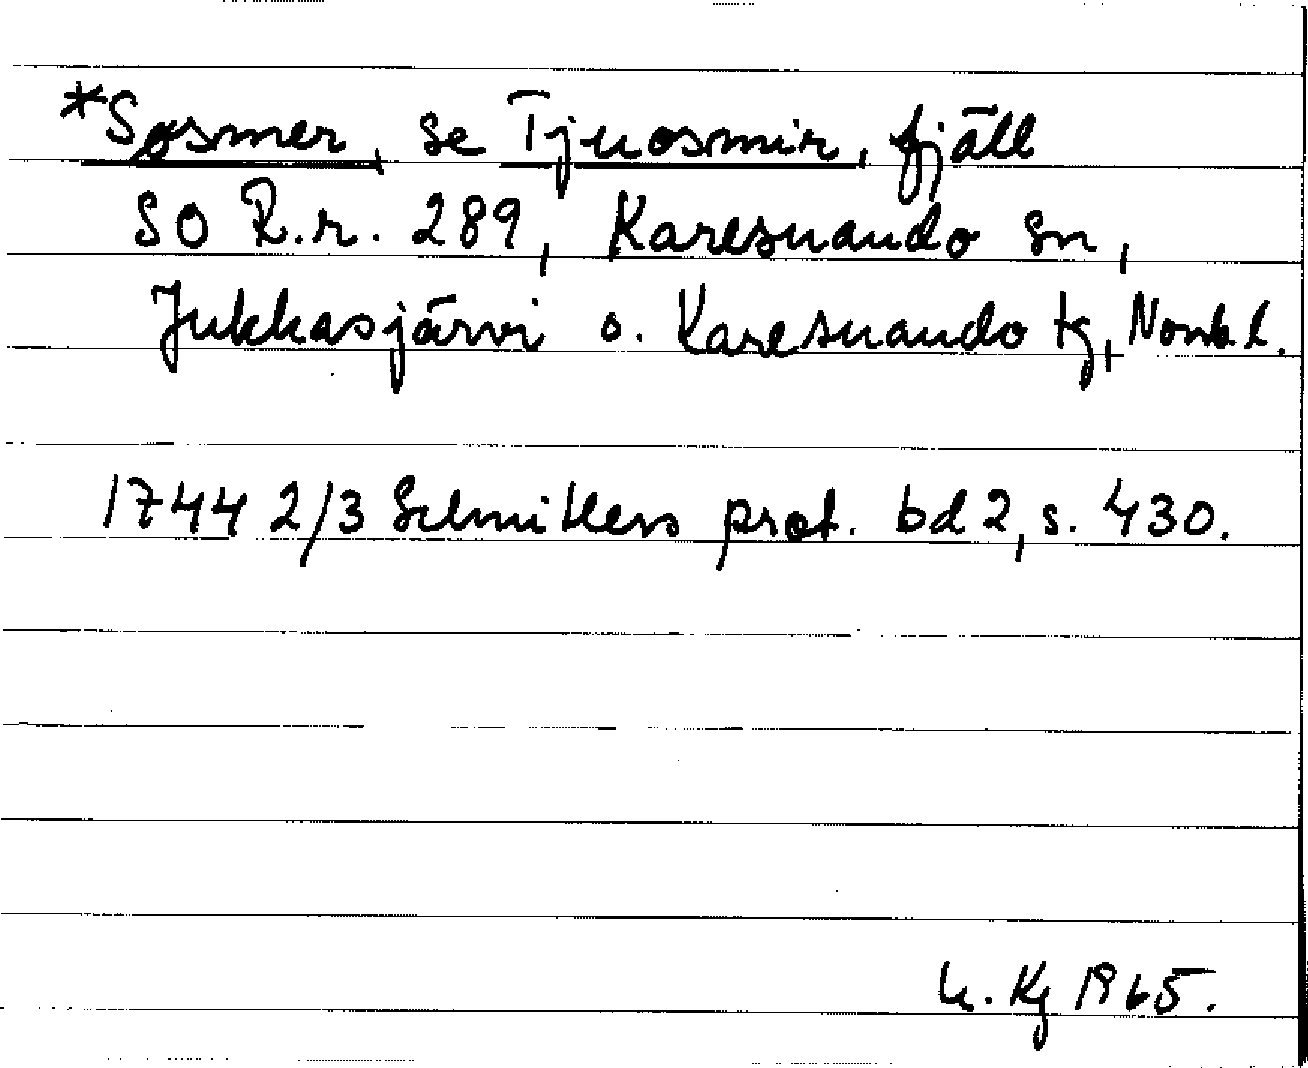 *Søsmer, se Tjuosmir, fjäll
SO R.r. 289, Karesuando sn,
Jukkasjärvi o. Karesuando tg, Norrb. l.
1744 2/3 Schnitlers prot. bd 2, s. 430.
Kg 1965.